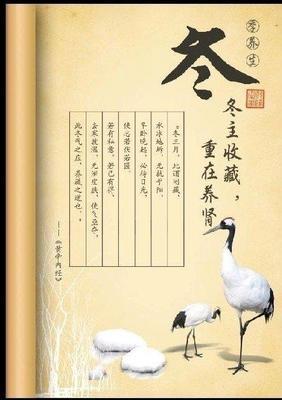 冬
季养生
冬主收藏，
重在养肾
“冬三月，此谓闭藏，
水冰地坼，无扰乎阳，
早卧晚起，必待日光，
使志若伏若匿，
若有私意，若已有得，
去寒就温，无泄皮肤，使气亟夺，
此冬气之应，养藏之道也。”
——《黄帝内经》